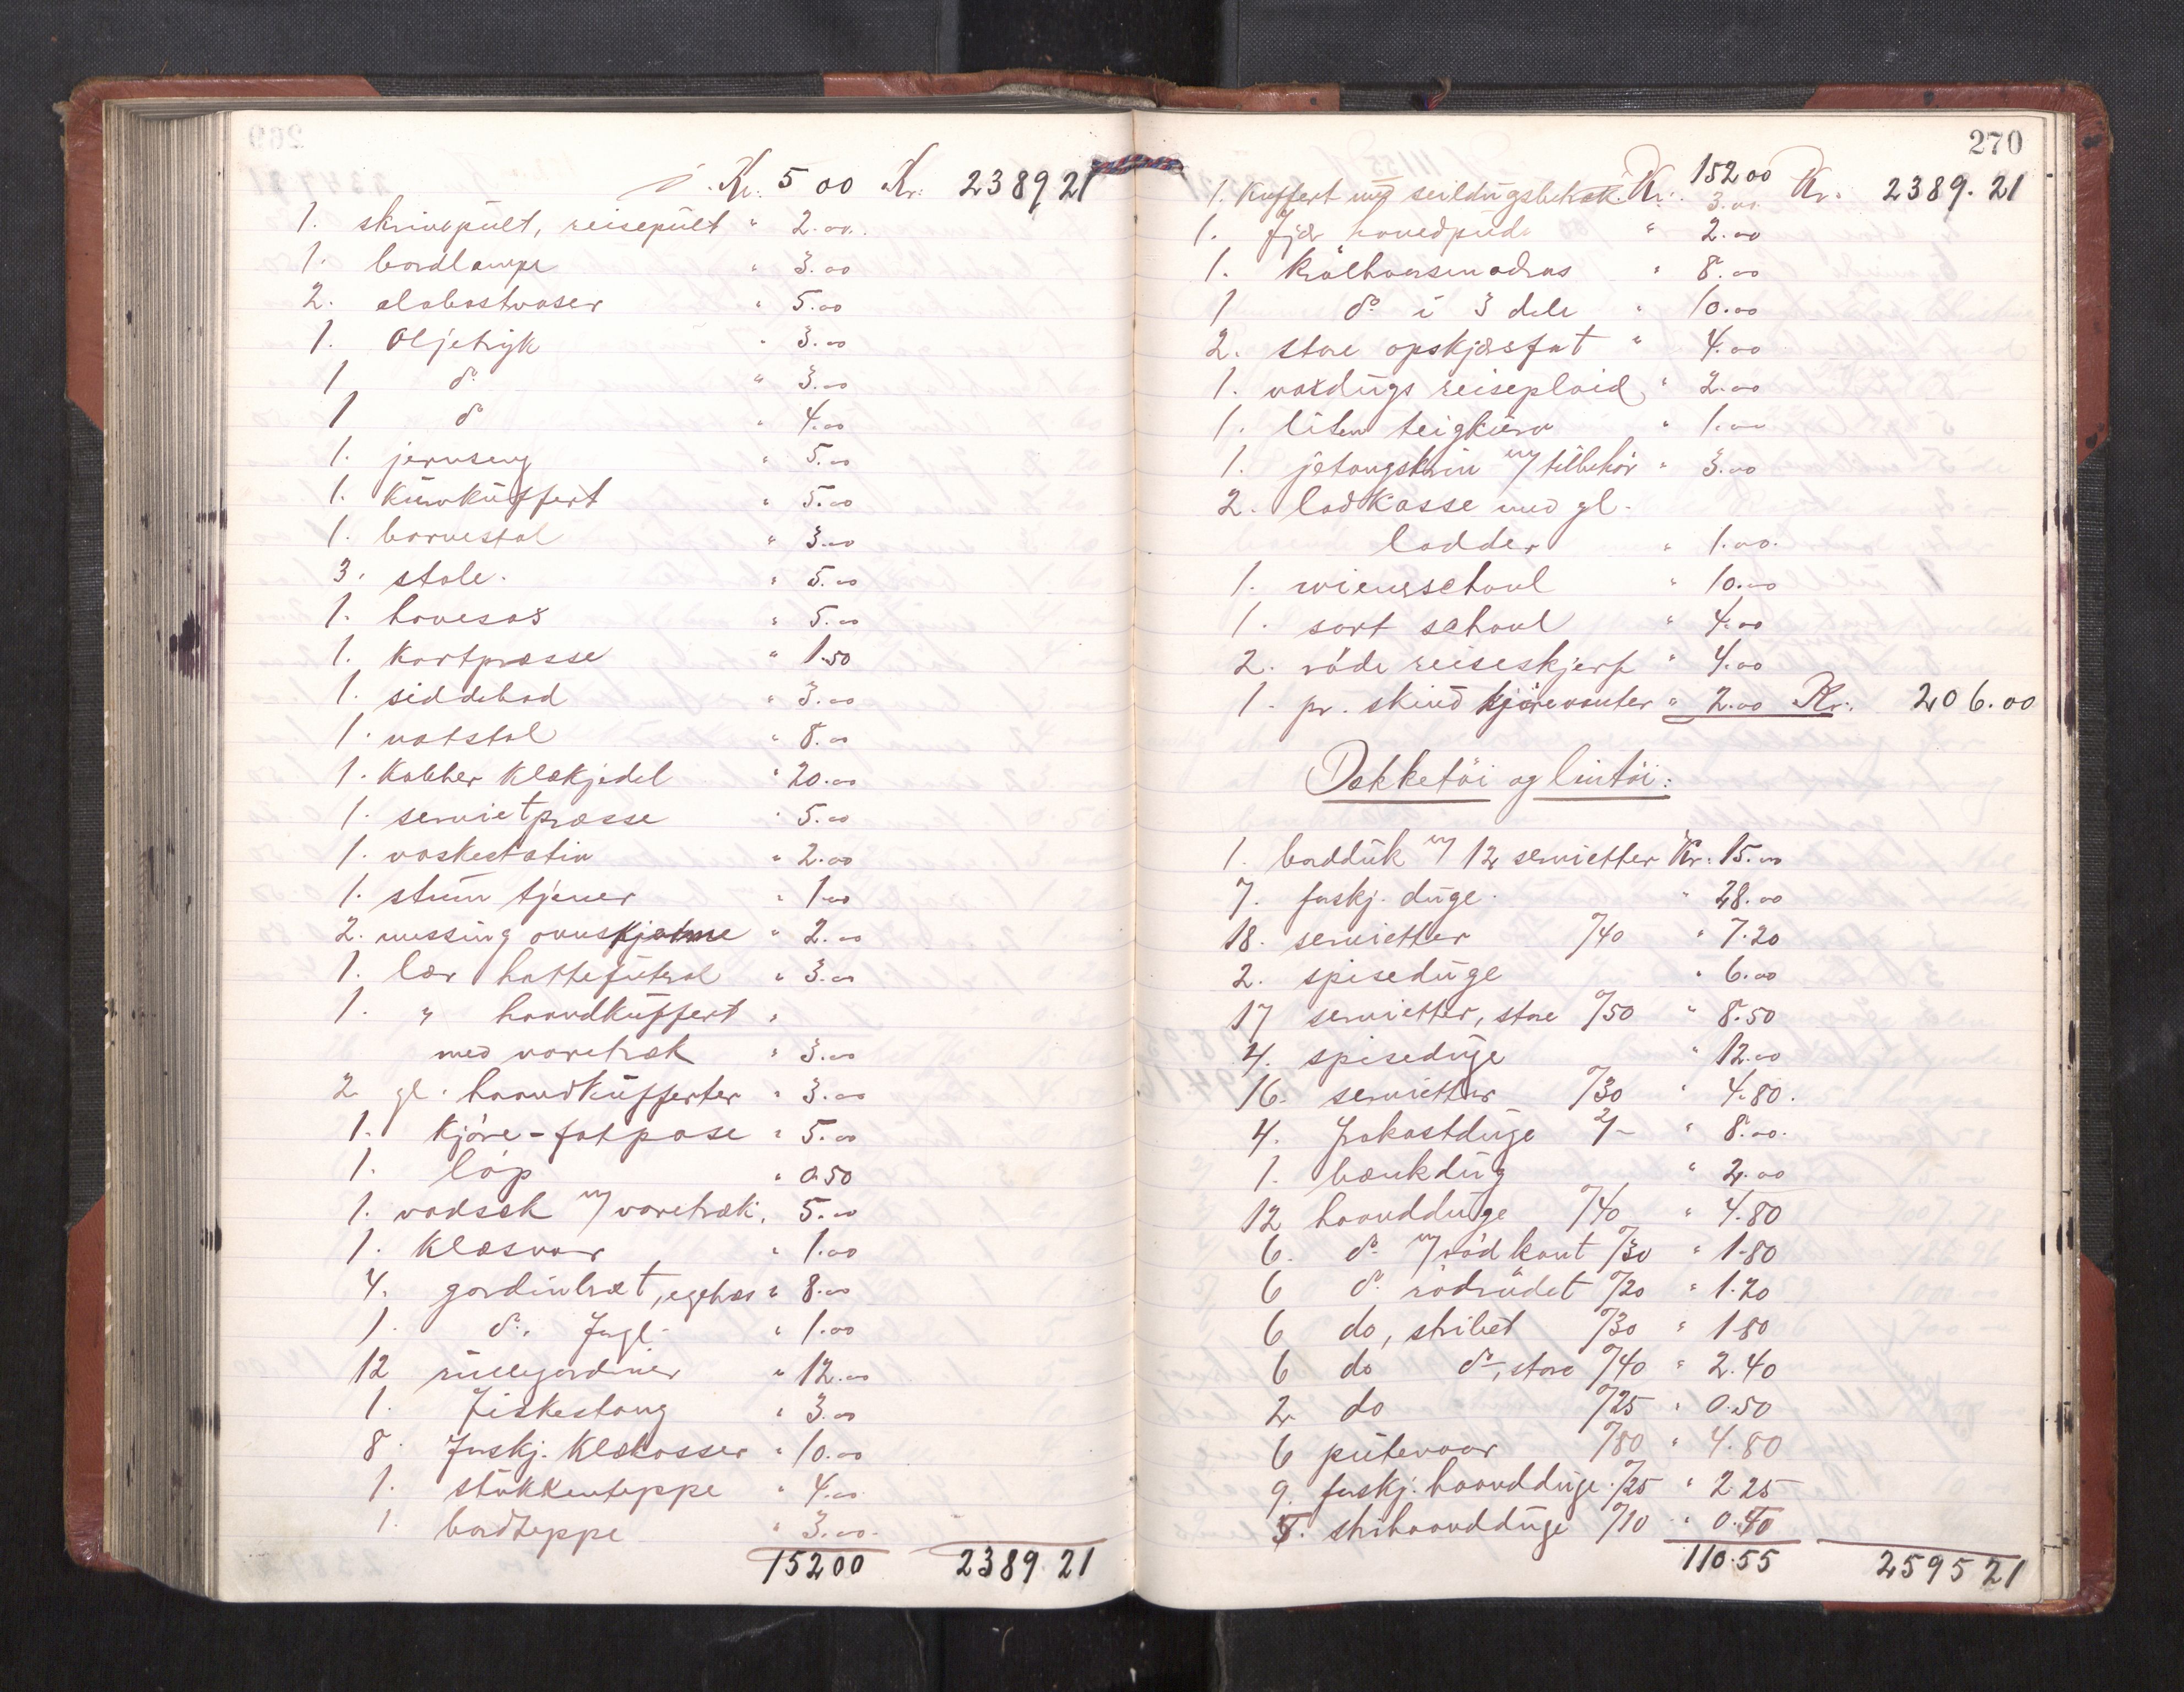 Kr. 5 00 Kr. 2389 21
1. skrivepult, reisepult " 2.00.
1. bordlampe " 3.00
2. alabastvaser " 5.00
1. Oljetryk " 3.00
1 do " 3.00
1 do " 4.00
1. jernseng " 5.00
1. kurvkuffert " 5.00
1. barnestol " 3.00
3. stole. " 5.00
1. havesax " 5.00
1. kortpresse " 1.50
1. siddebad " 3.00
1. natstol " 8.00
1. kobber klækjedel " 20.00
1. servietpresse " 5.00
1. vaskestativ " 2.00
1. stum tjener " 1.00
2. messing ovnskjærme " 2.00
1. lær hattefutral " 3.00
1. " haandkuffert "
med varetræk " 3.00
2 gl. haandkufferter " 3.00
1. kjøre-fotpose " 5.00
1. løp " 0.50
1. vadsæk m/ varetræk. 5.00
1. klæsnor " 1.00
4. gardintræt, egetræs " 8.00
1. do. forgl. " 1.00
12 rullegardiner " 12.00
1. Fiskestang " 3.00
8. forskj. klækasser " 10.00
1. stukkenteppe " 4.00
1. bordteppe " 3.00.
152 00 2389 21
270
152 00
1. kuffert m/ seildugsbetræk. Kr. 3.00. Kr. 2389. 21
1. Fjær hovedpude " 2.00
1. krølhaarsmadras " 8.00
1 do i 3 dele " 10.00
2. store opskjærsfat " 4.00
1. voxdugs reiseplaid " 2.00
1. liten teigkurv " 1.00
1. jetongskrin m/ tilbehør " 3.00
2. ladkasse med gl.
ladder " 1.00.
1. wienerschaul " 10.00
1. sort schaul " 4.00
2. røde reiseskjerf " 4.00
1. pr. skind kjørevanter " 2.00 Kr. 206.00
Dækketøi og lintøi:
1. bordduk m/ 12 servietter Kr. 15.00
7. forskj. duge. " 28.00
18. servietter 0/40 " 7.20
2. spiseduge " 6.00
17 servietter, store 0/50 " 8.50
4. spiseduge " 12.00
16. servietter 0/30 " 4.80.
4. frokostduge 2/- " 8.00.
1. bænkdug " 2.00
12 haandduge 0/40 " 4.80
6. do. m/ rød kant 0/30 " 1.80
6 do. rødrudet 0/20 " 1.20
6 do, stribet 0/30 " 1.80
6 do do, store 0/40 " 2.40
2 do 0/25 " 0.50
6 putevaar 0/80 " 4.80
9. forskj. haandduge. 0/25 " 2.25
5. strihaandduge 0/10 " 0.50
110.55 2595 21